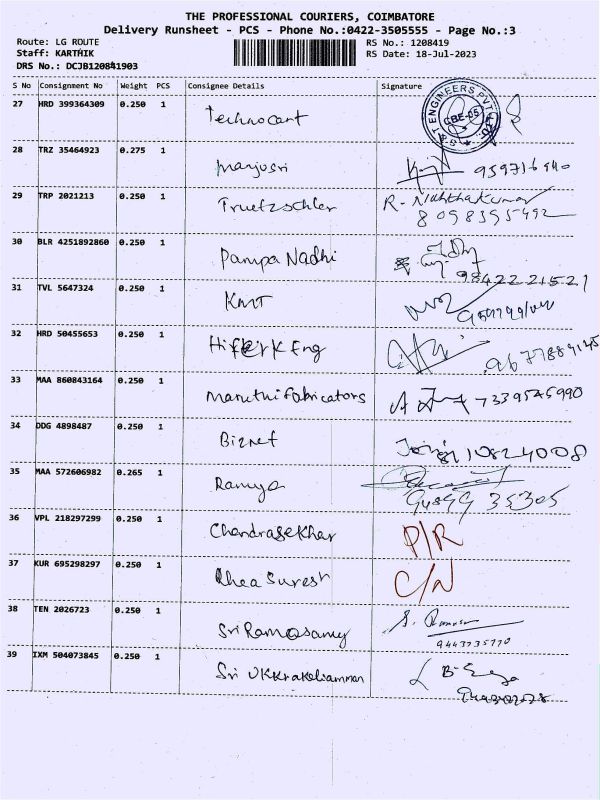 THE PROFESSIONAL COURIERS, COIMBATORE
Delivery Runsheet - PCS - Phone No.:0422-3505555 - Page No.:3
Route: LG ROUTE RS No.: 1208419
Staff: KARTHIK RS Date: 18-Jul-2023
DRS No.: DCJB120841903
S No Consignment No Weight PCS Consignee Details Signature
27 HRD 399364309 0.250 1 Technocart
S & T ENGINEERS PVT. LTD. CBE-05
28 TRZ 35464923 0.275 1 Manjusri
29 TRP 2021213 0.250 1 Truetzschler R-
8098395492
30 BLR 4251892860 0.250 1 Pampa Nadhi
98422 21521
31 TVL 5647324 0.250 1 KMT
32 HRD 50455653 0.250 1 Eng
33 MAA 860843164 0.250 1 Maruthi Fabricators 7339545990
34 DDG 4898487 0.250 1 Biznet
35 MAA 572606982 0.265 1 Ramya
36 VPL 218297299 0.250 1 Chandrasekhar P/R
37 KUR 695298297 0.250 1 Rhea Suresh C/N
38 TEN 2026723 0.250 1 Sri Ramasamy S.
9443735770
39 IXM 504073845 0.250 1 Sri